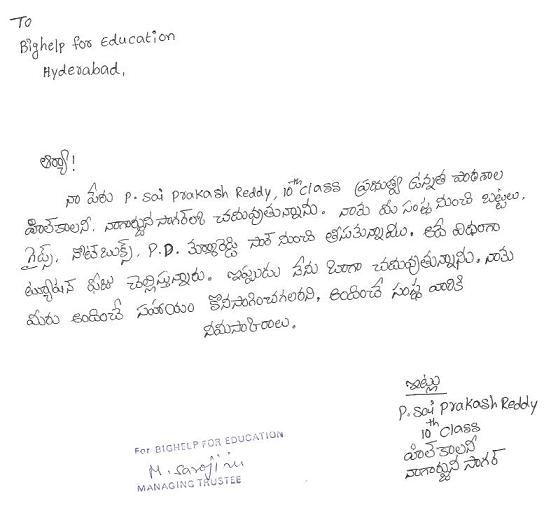 To
Bighelp for Education
Hyderabad,
ఆర్యా!
నా పేరు P. Sai Prakash Reddy, 10th Class ప్రభుత్వ ఉన్నత పాఠశాల
హిల్ కాలనీ, నాగార్జున సాగర్‌లో చదువుతున్నాను. నాకు మీ సంస్థ నుంచి బట్టలు,
గైడ్స్, నోట్ బుక్స్, P.D. సార్ నుంచి తీసుకున్నాము. అదే విధంగా
ట్యూషన్ ఫీజు చెల్లిస్తున్నారు. ఇప్పుడు నేను బాగా చదువుతున్నాను. నాకు
మీరు అందించే సహాయం కొనసాగించగలరని, అందించే సంస్థ వారికి
నమస్కారాలు.
ఇట్లు
P. Sai Prakash Reddy
10th Class
హిల్ కాలనీ
నాగార్జున సాగర్
For BIGHELP FOR EDUCATION
M. Sarojini
MANAGING TRUSTEE